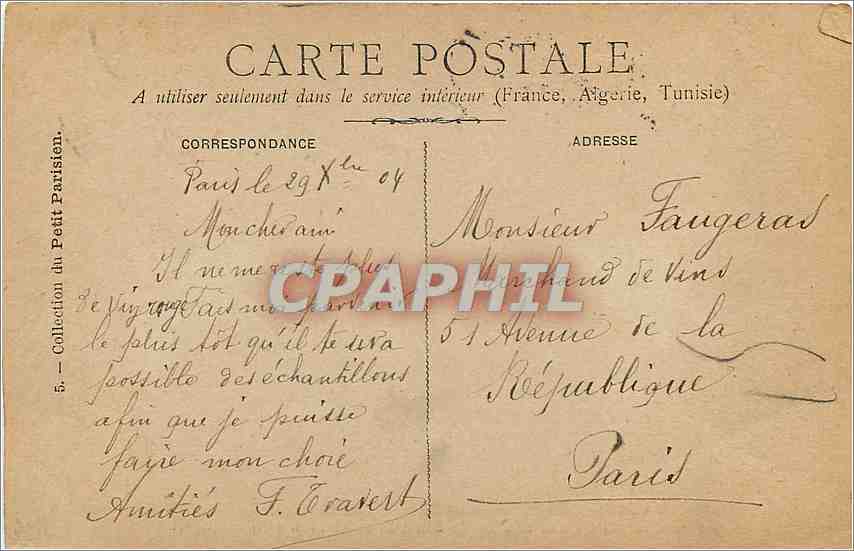 CARTE POSTALE
A utiliser seulement dans le service intérieur (France, Algerie, Tunisie)
5. — Collection du Petit Parisien.
CORRESPONDANCE
Paris le 29 Xbre 04
Mon cher ami
Il ne me reste plus
de vin rouge Fais moi parvenir
le plus tôt qu'il te sera
possible des échantillons
afin que je puisse
faire mon choie
Amitiés F. Travert
ADRESSE
Monsieur Faugeras
Marchand de Vins
51 Avenue de la
République
Paris
CPAPHIL